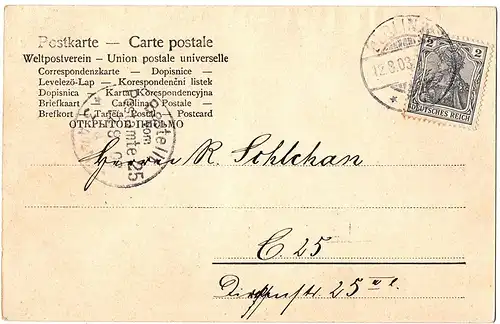 Postkarte — Carte postale
Weltpostverein — Union postale universelle
Correspondenzkarte — Dopisnice —
Levelező-Lap — Korespondenční listek
Dopisnica — Karta Korespondencyjna
Briefkaart — Cartolina Postale —
Brefkort — Tarjeta Postal — Postcard
ОТКРЫТОЕ ПИСЬМО
12.8.03
2 2
DEUTSCHES REICH
Bestellt
vom
Postamte 25
Herrn R. Sohlchan
C. 25